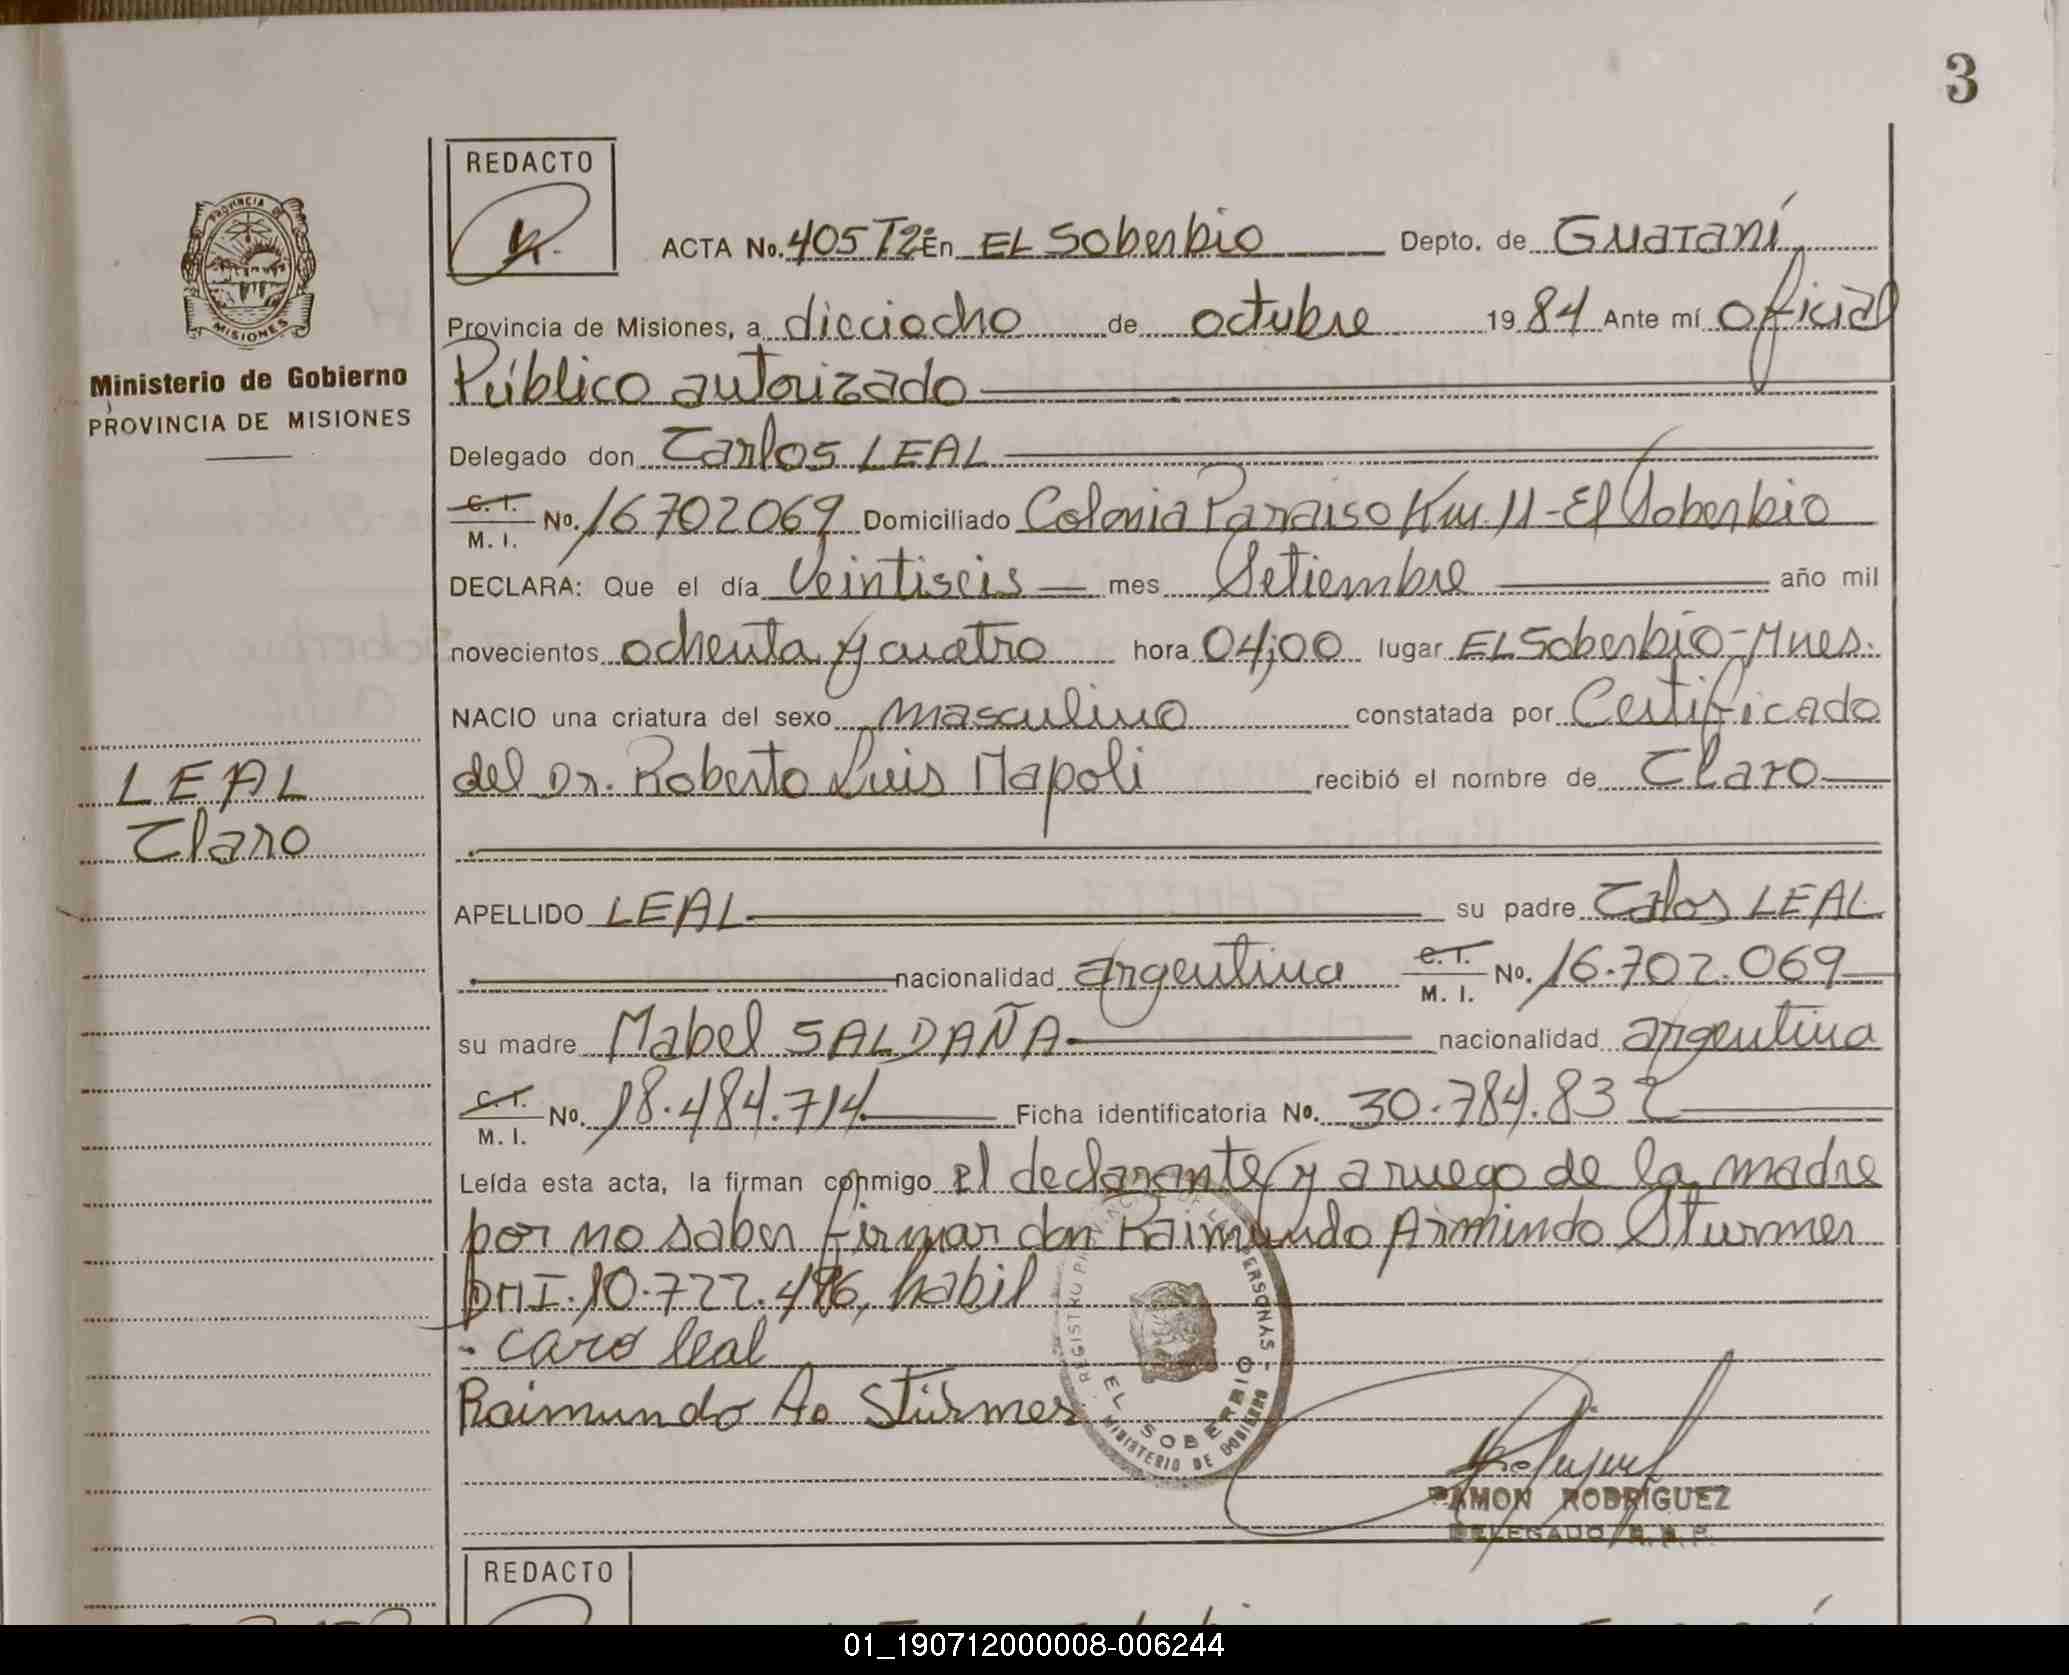 3
REDACTO
ACTA No. 405 T2: En EL Soberbio Depto. de Guaraní
Provincia de Misiones, a dieciocho de octubre 1984 Ante mí Oficial
PROVINCIA DE
MISIONES
Ministerio de Gobierno
PROVINCIA DE MISIONES
Público autorizado
Delegado don Carlos LEAL
C. I.
M. I. No. 16702069 Domiciliado Colonia Paraiso Km. 11 - El Soberbio
DECLARA: Que el día Veintiseis mes Setiembre año mil
novecientos ochenta y cuatro hora 04;00 lugar EL Soberbio - Mnes.
NACIO una criatura del sexo masculino constatada por Certificado
del Dr. Roberto Luis Napoli recibió el nombre de Claro
LEAL
Claro
APELLIDO LEAL su padre Calos LEAL
nacionalidad argentina C. I.
M. I. No. 16.702.069
su madre Mabel SALDAÑA nacionalidad argentina
C. I.
M. I. No. 18.484.714 Ficha identificatoria No. 30.784.832
Leída esta acta, la firman conmigo el declarante y a ruego de la madre
por no saber firmar don Raimundo Armindo Sturmer
DNI. 10.722.496, habil
caro leal
Raimundo Ao Stürmer
EL SOBERBIO
MINISTERIO DE GOBIERNO
RAMON RODRIGUEZ
DELEGADO R.R.P.
REDACTO
01_190712000008-006244